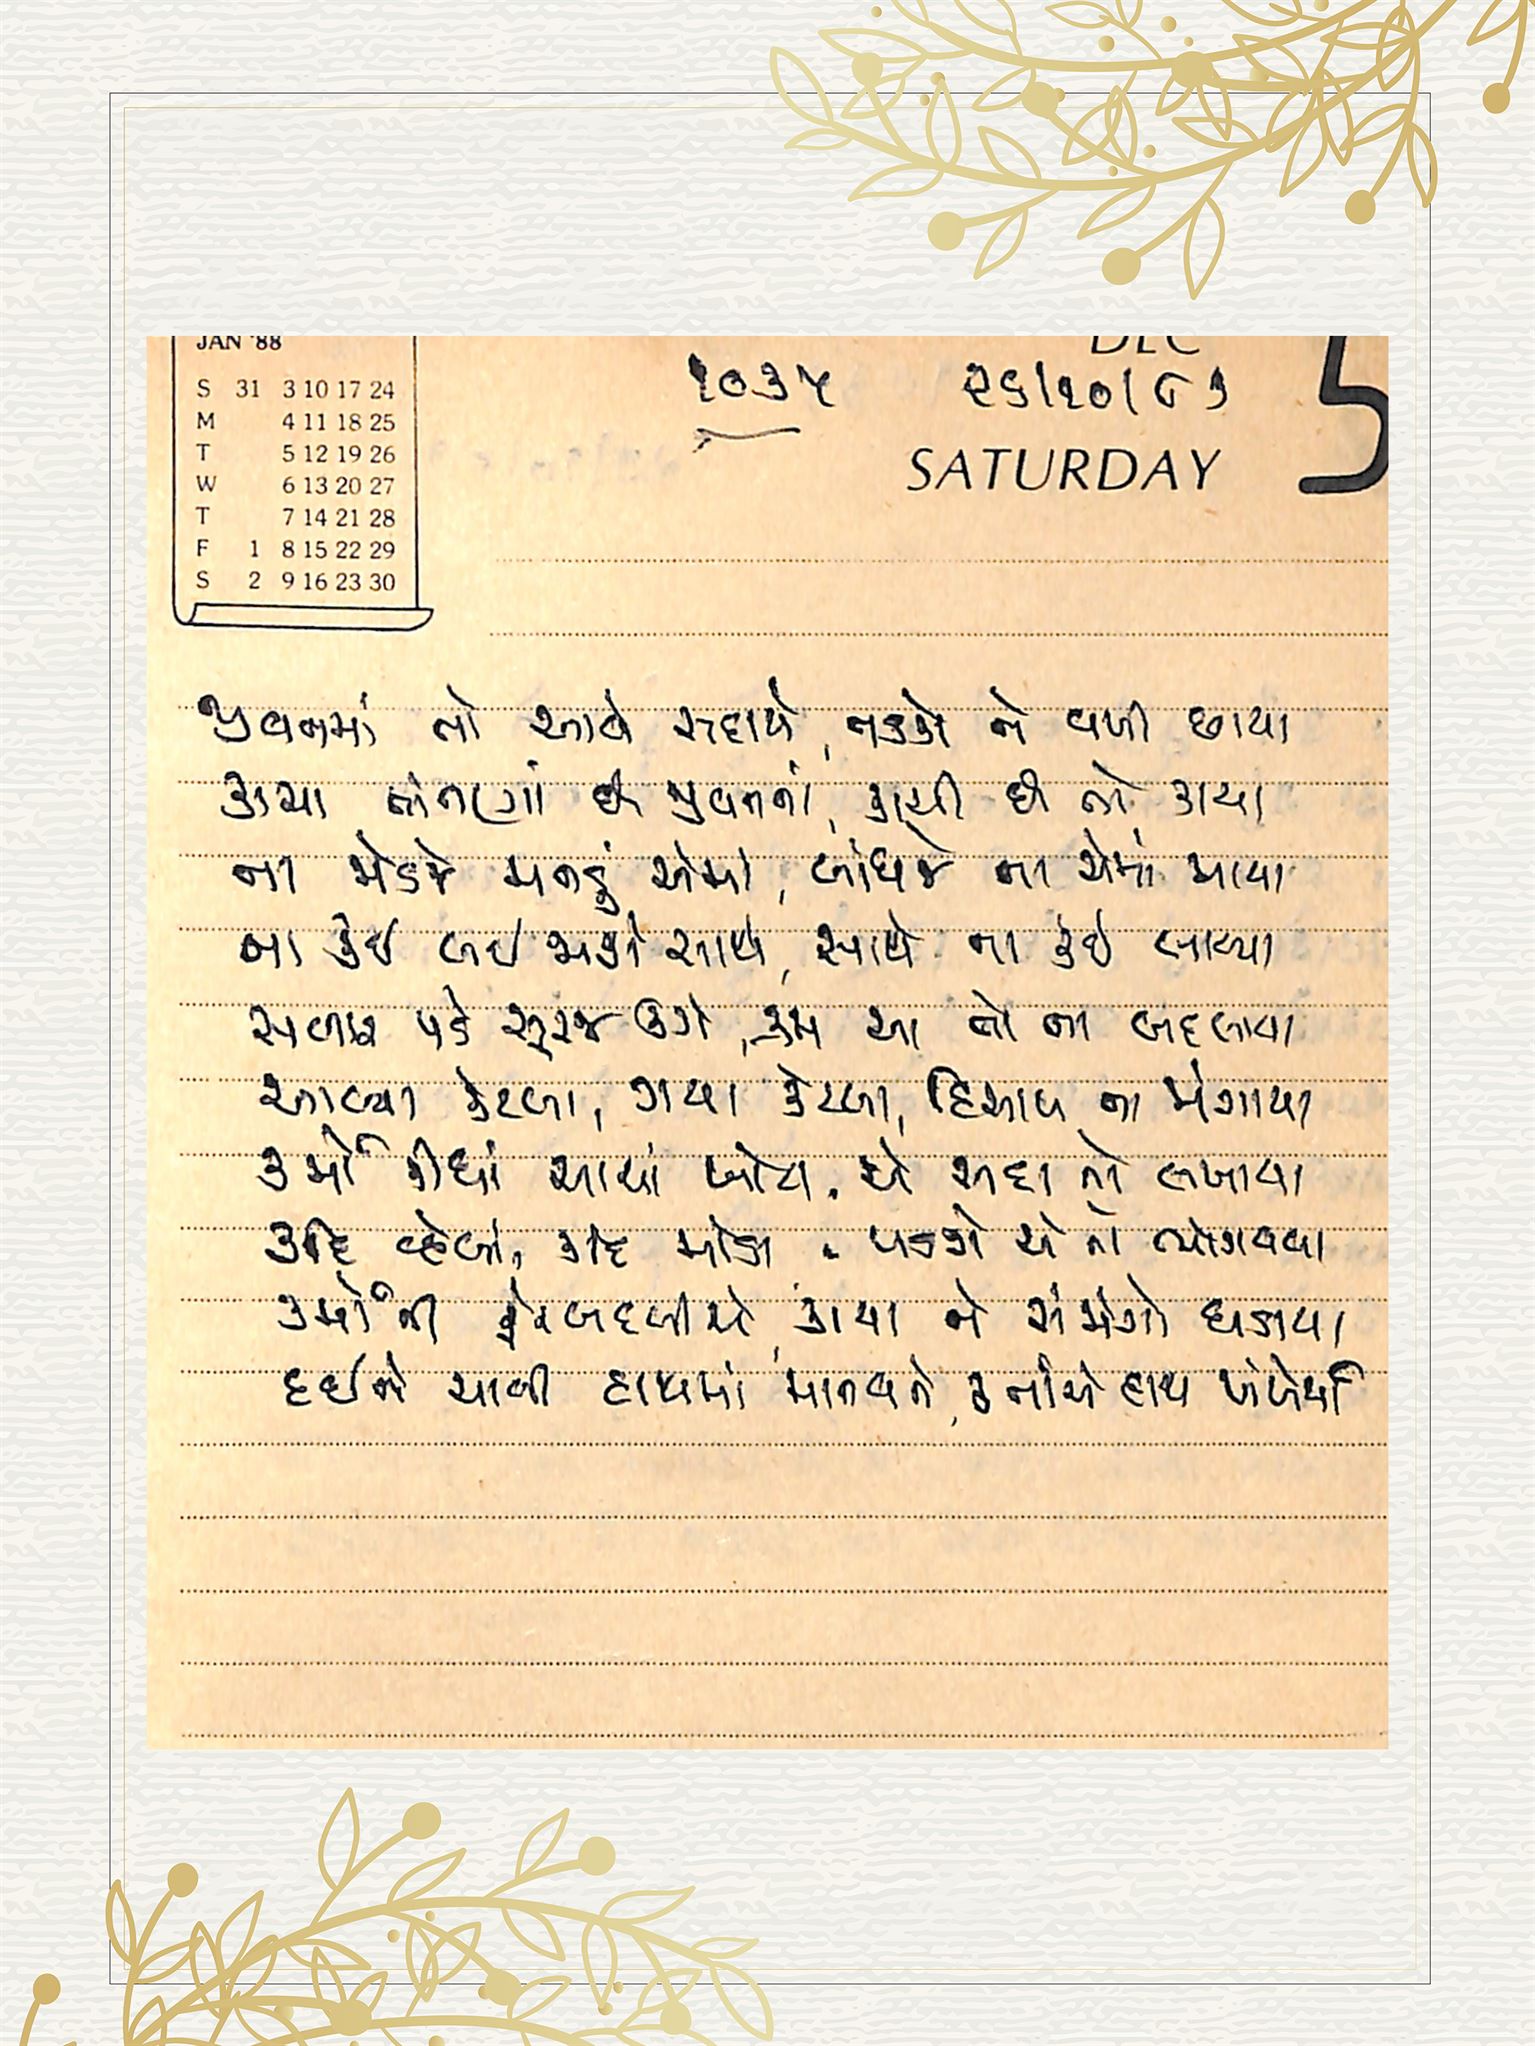 JAN '88
S 31 3 10 17 24
M 4 11 18 25
T 5 12 19 26
W 6 13 20 27
T 7 14 21 28
F 1 8 15 22 29
S 2 9 16 23 30
DEC 5
૧૦૩૫ ૨૬/૧૦/૮૭
SATURDAY
જીવનમાં તો આવે સદાયે, તડકો ને વળી છાયા
કાચા તાંતણાં છે જીવનનાં, કાચી છે તો કાયા
ના જોડજે મનડું એમાં, બાંધજે ના એમાં માયા
ના કંઈ લઈ જાશે સાથે, સાથે ના કંઈ લાવ્યા
સવાર પડે સૂરજ ઊગે, ક્રમ આ તો ના બદલાયા
આવ્યા કેટલા, ગયા કેટલા, હિસાબ ના મંડાયા
કર્મો કીધાં સાચાં ખોટા, એ સદા તો લખાયા
કદિ વ્હેલાં, કદિ મોડા, પડશે એ તો ભોગવવા
કર્મોની ફેરબદલીએ, કાયા ને સંજોગો ઘડાયા
દઈને ચાવી હાથમાં માનવને, કર્તાએ હાથ ખંખેર્યા